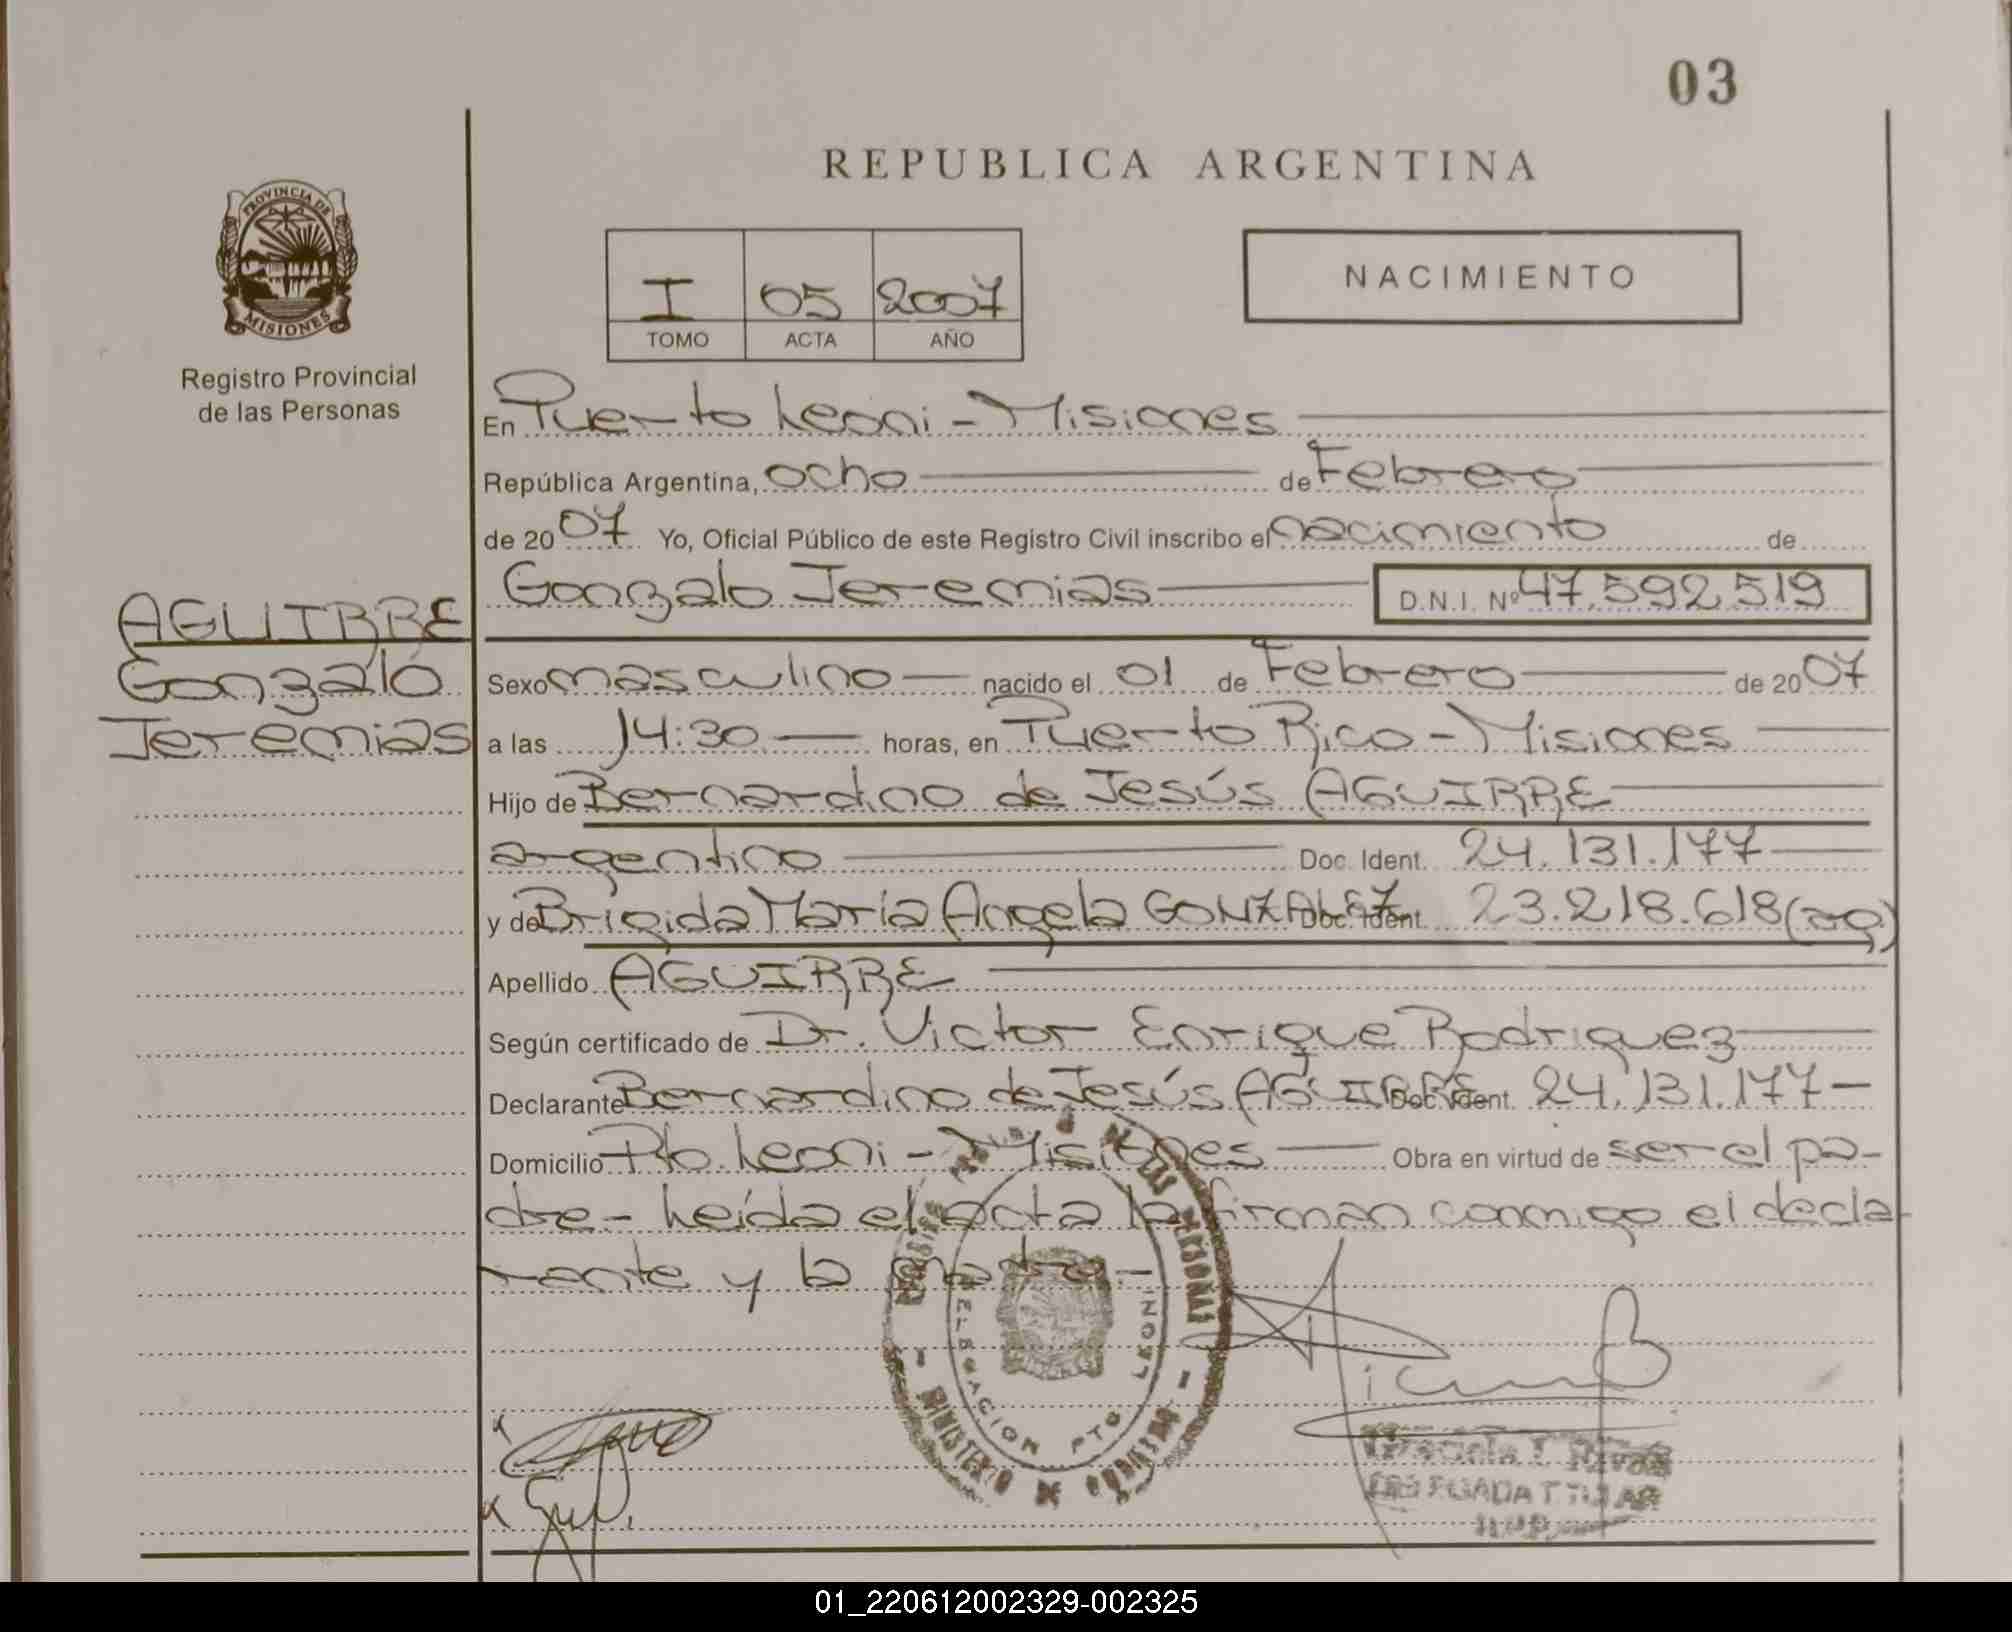 03
REPUBLICA ARGENTINA
PROVINCIA DE
MISIONES
Registro Provincial
de las Personas
I 05 2007
TOMO ACTA AÑO
NACIMIENTO
En Puerto Leoni - Misiones
República Argentina, ocho de Febrero
de 2007 Yo, Oficial Público de este Registro Civil inscribo el nacimiento de
Gonzalo Jeremias D.N.I. Nº 47.592.519
AGUIRRE
Gonzalo
Jeremias
Sexo masculino nacido el 01 de Febrero de 2007
a las 14:30 horas, en Puerto Rico - Misiones
Hijo de Bernardino de Jesús AGUIRRE
argentino Doc. Ident. 24.131.177
y de Brigida María Angela GONZALEZ Doc. Ident. 23.218.618 (ag)
Apellido AGUIRRE
Según certificado de Dr. Victor Enrique Rodriguez
Declarante Bernardino de Jesús AGUIRRE Doc. Ident. 24.131.177
Domicilio Pto. Leoni - Misiones Obra en virtud de ser el pa-
dre - Leída el acta la firman conmigo el decla-
rante y la madre -
DELEGACION PTO LEONI
MINISTERIO DE GOBIERNO
DELEGADA TITULAR
01_220612002329-002325